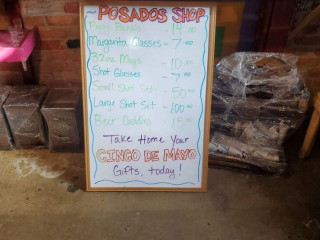 ~ POSADOS SHOP
Margarita Glasses - 7.00
32oz Mugs - 10.00
Shot Glasses - 7.00
Small Shot Set - 50.00
Large Shot Set - 100.00
Beer Caddies - 15.00
Take Home Your
CINCO DE MAYO
Gifts, today!